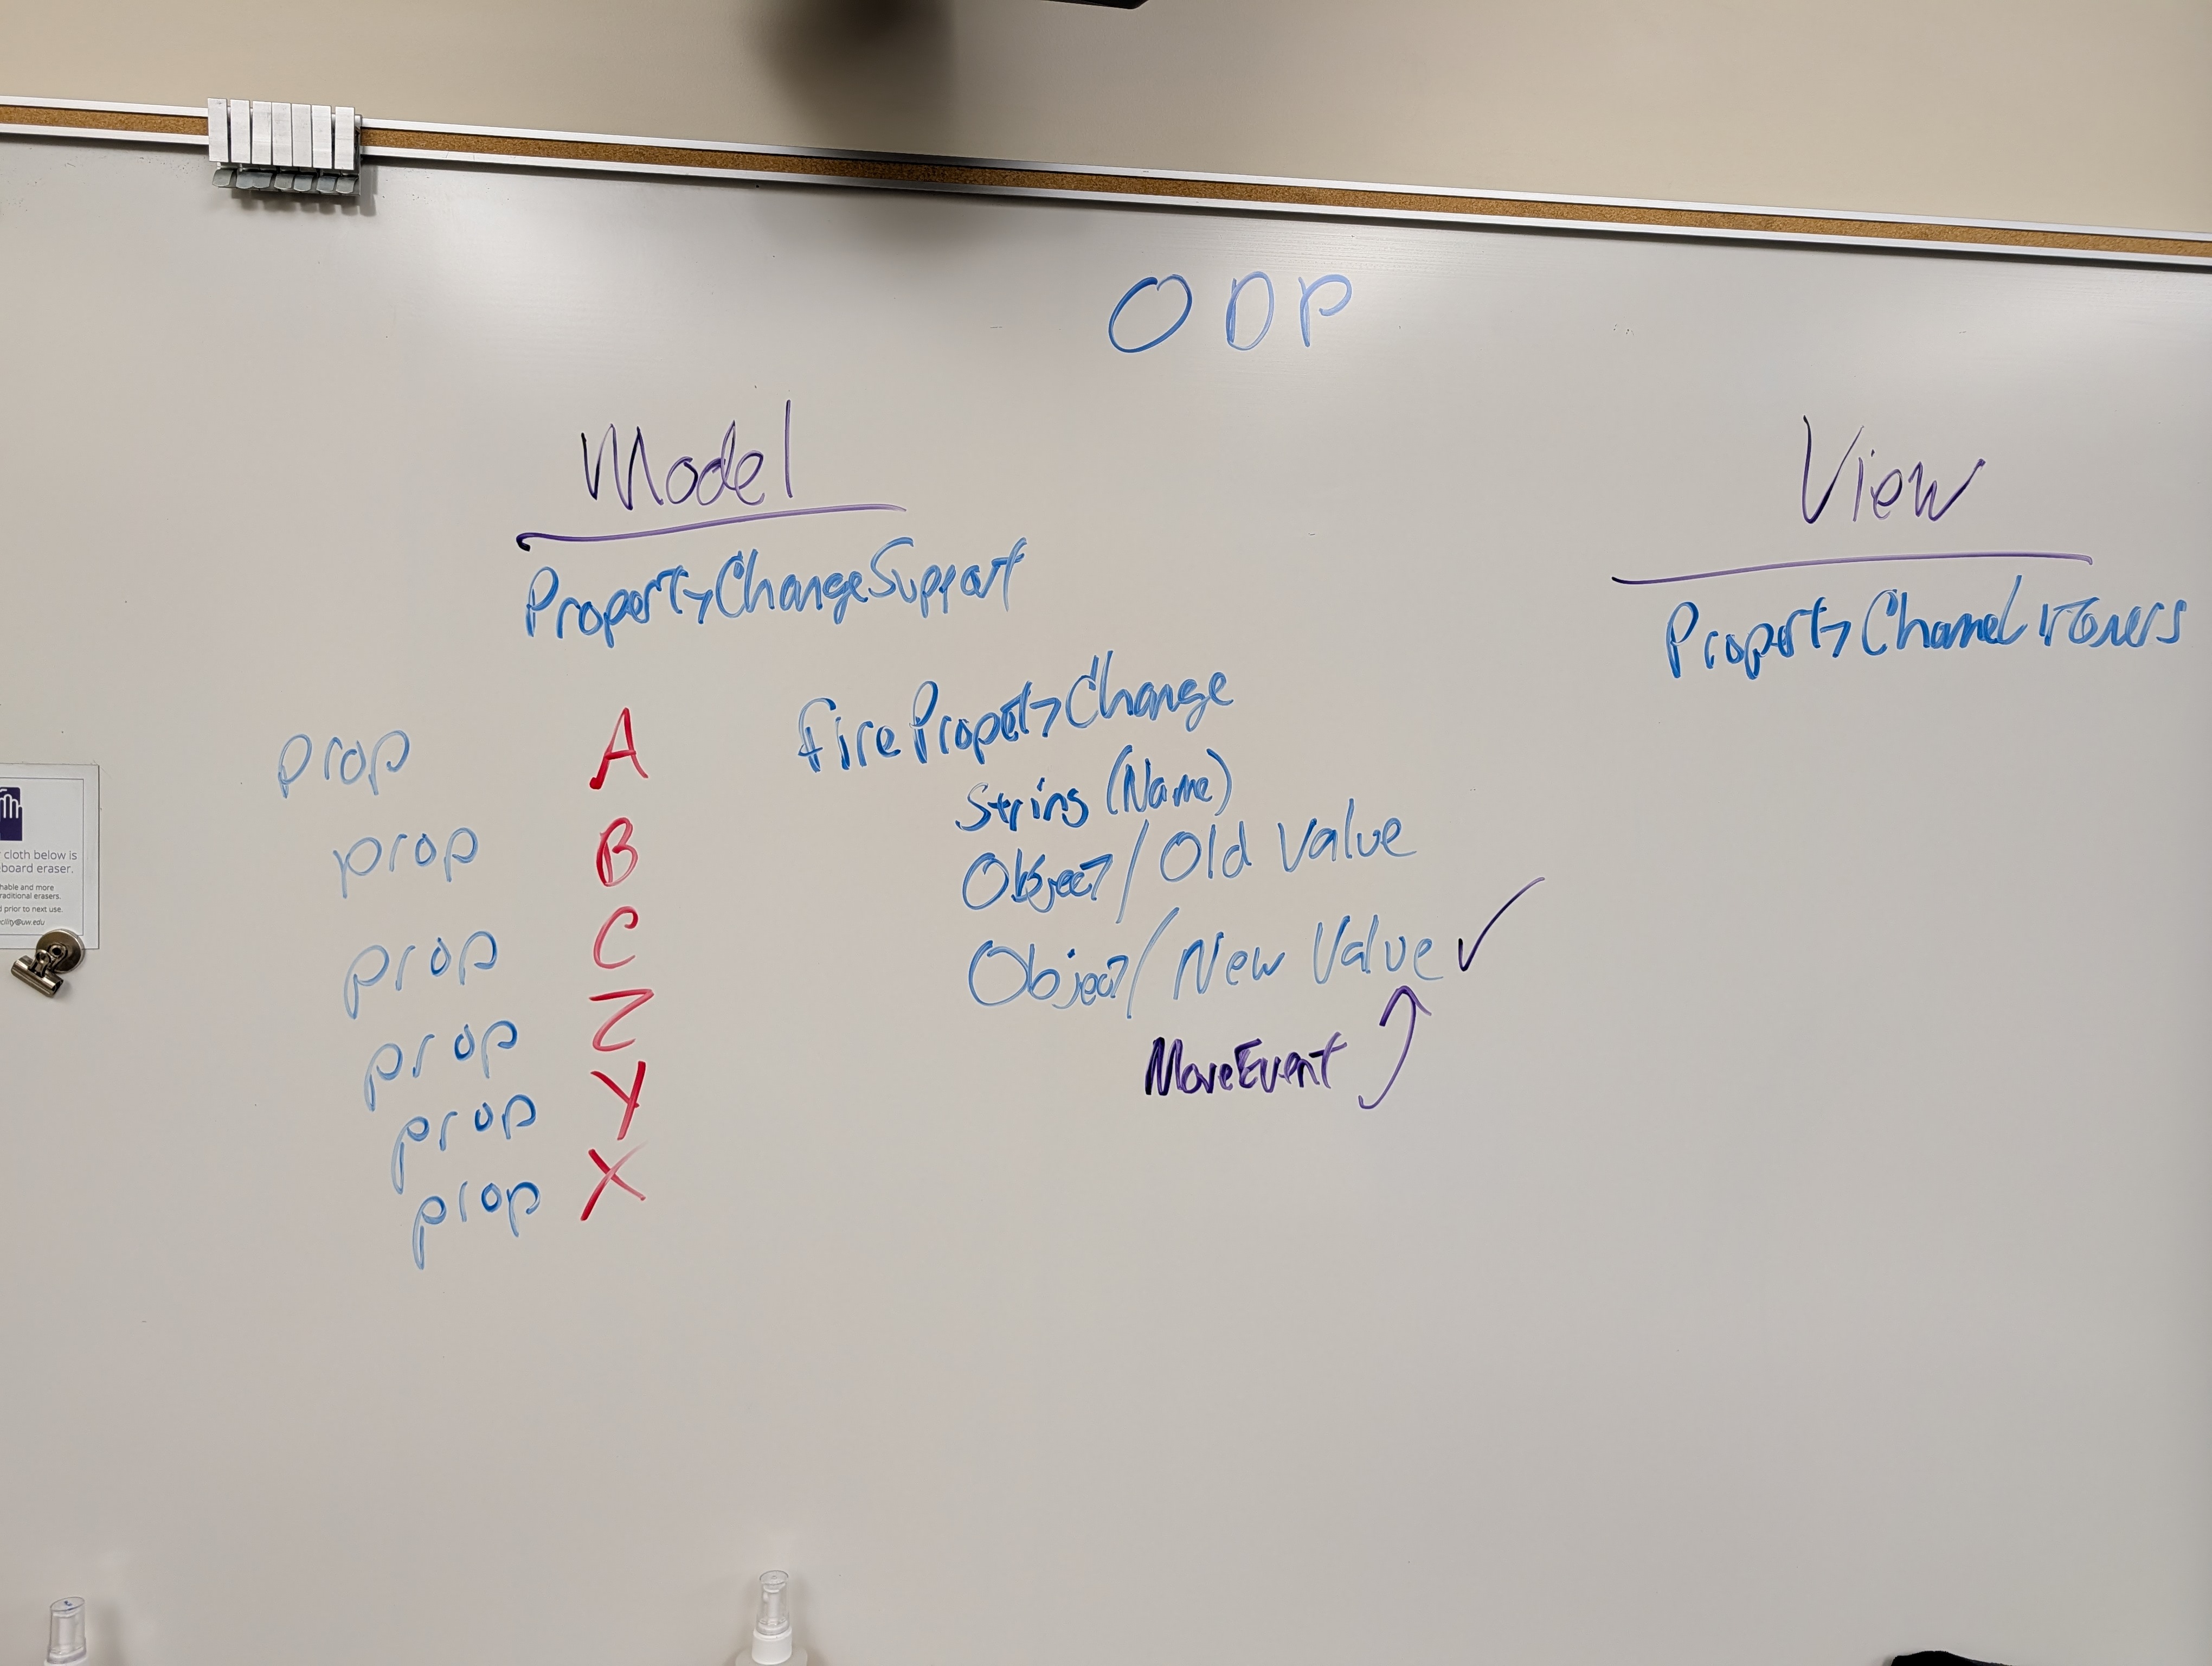 ODP
Model
PropertyChangeSupport
View
Property
firePropertyChange
String (Name)
Object / Old Value
Object / New Value ✓
MoveEvent
prop A
prop B
prop C
prop Z
prop Y
prop X
cloth below is
board eraser.
hable and more
raditional erasers.
prior to next use.
cility@uw.edu